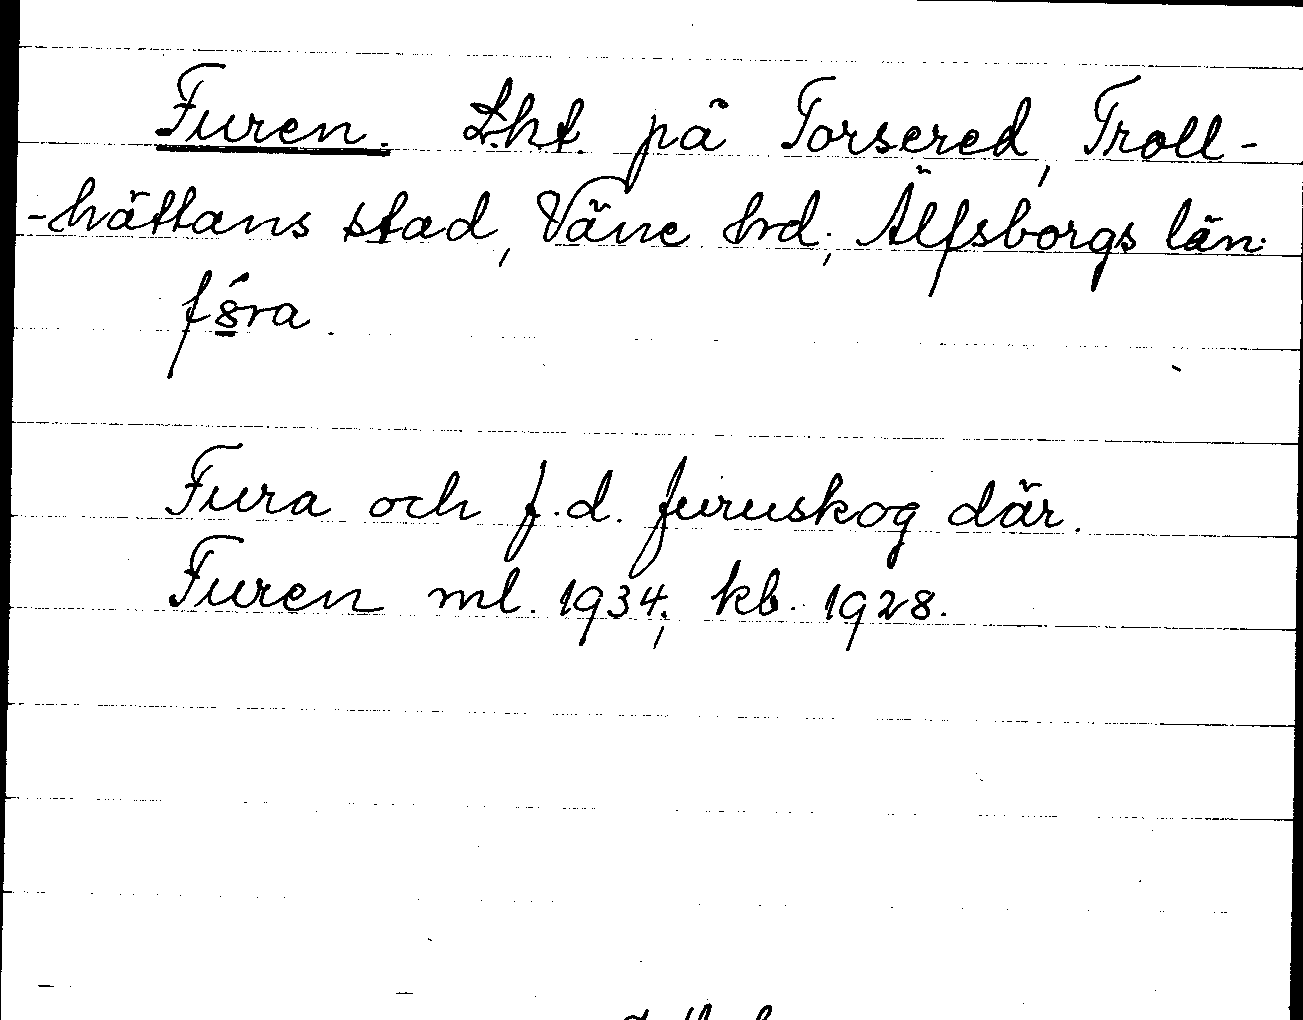 Furen. Lht. på Torsered, Troll-
-hättans stad, Väne hd; Älfsborgs län.
fo̱ra.
Fura och f.d. furuskog där.
Furen ml. 1934; kb. 1928.